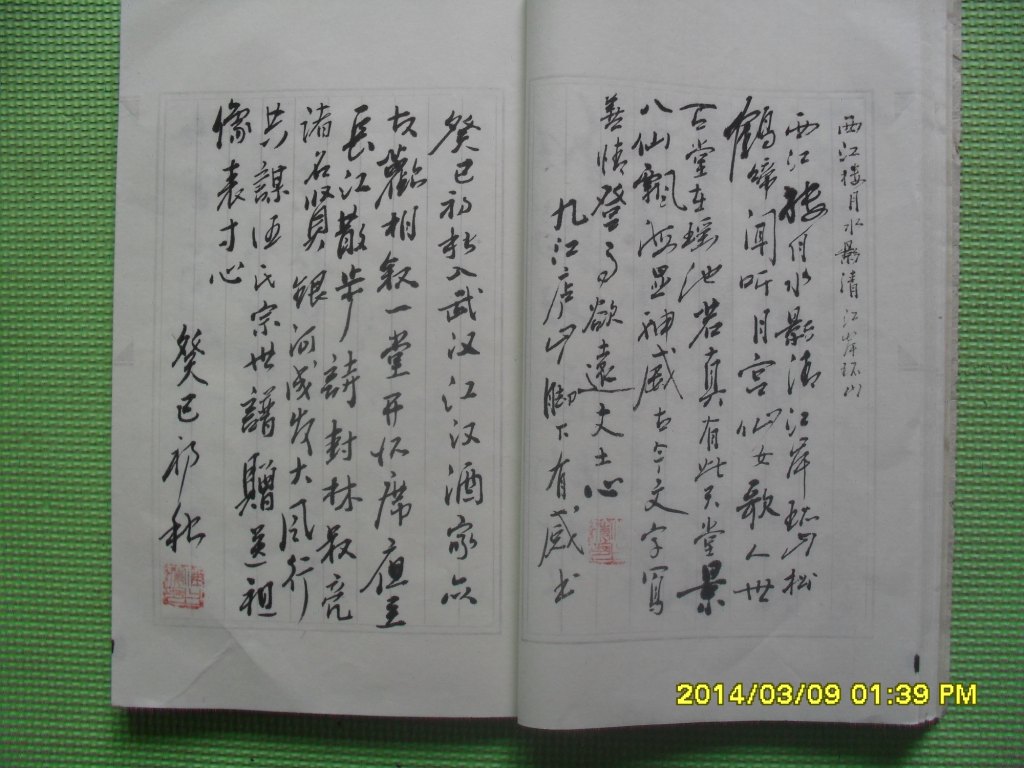 西江楼月水影清 江岸环山
西江楼月水影清江岸环山松
鹤啼闻听月宫仙女歌人世
百堂在瑶池若真有此天堂景
八仙飘逸显神威古今文字写
善情登高欲远文士心
九江庐山脚下有感书
癸巳初秋入武汉江汉酒家众
友欢相叙一堂开怀席
长江散步 诗封林叔亮
诸名贤银河成发大风行
共谋 氏宗世谱赠送祖
像表寸心
癸巳初秋
2014/03/09 01:39 PM